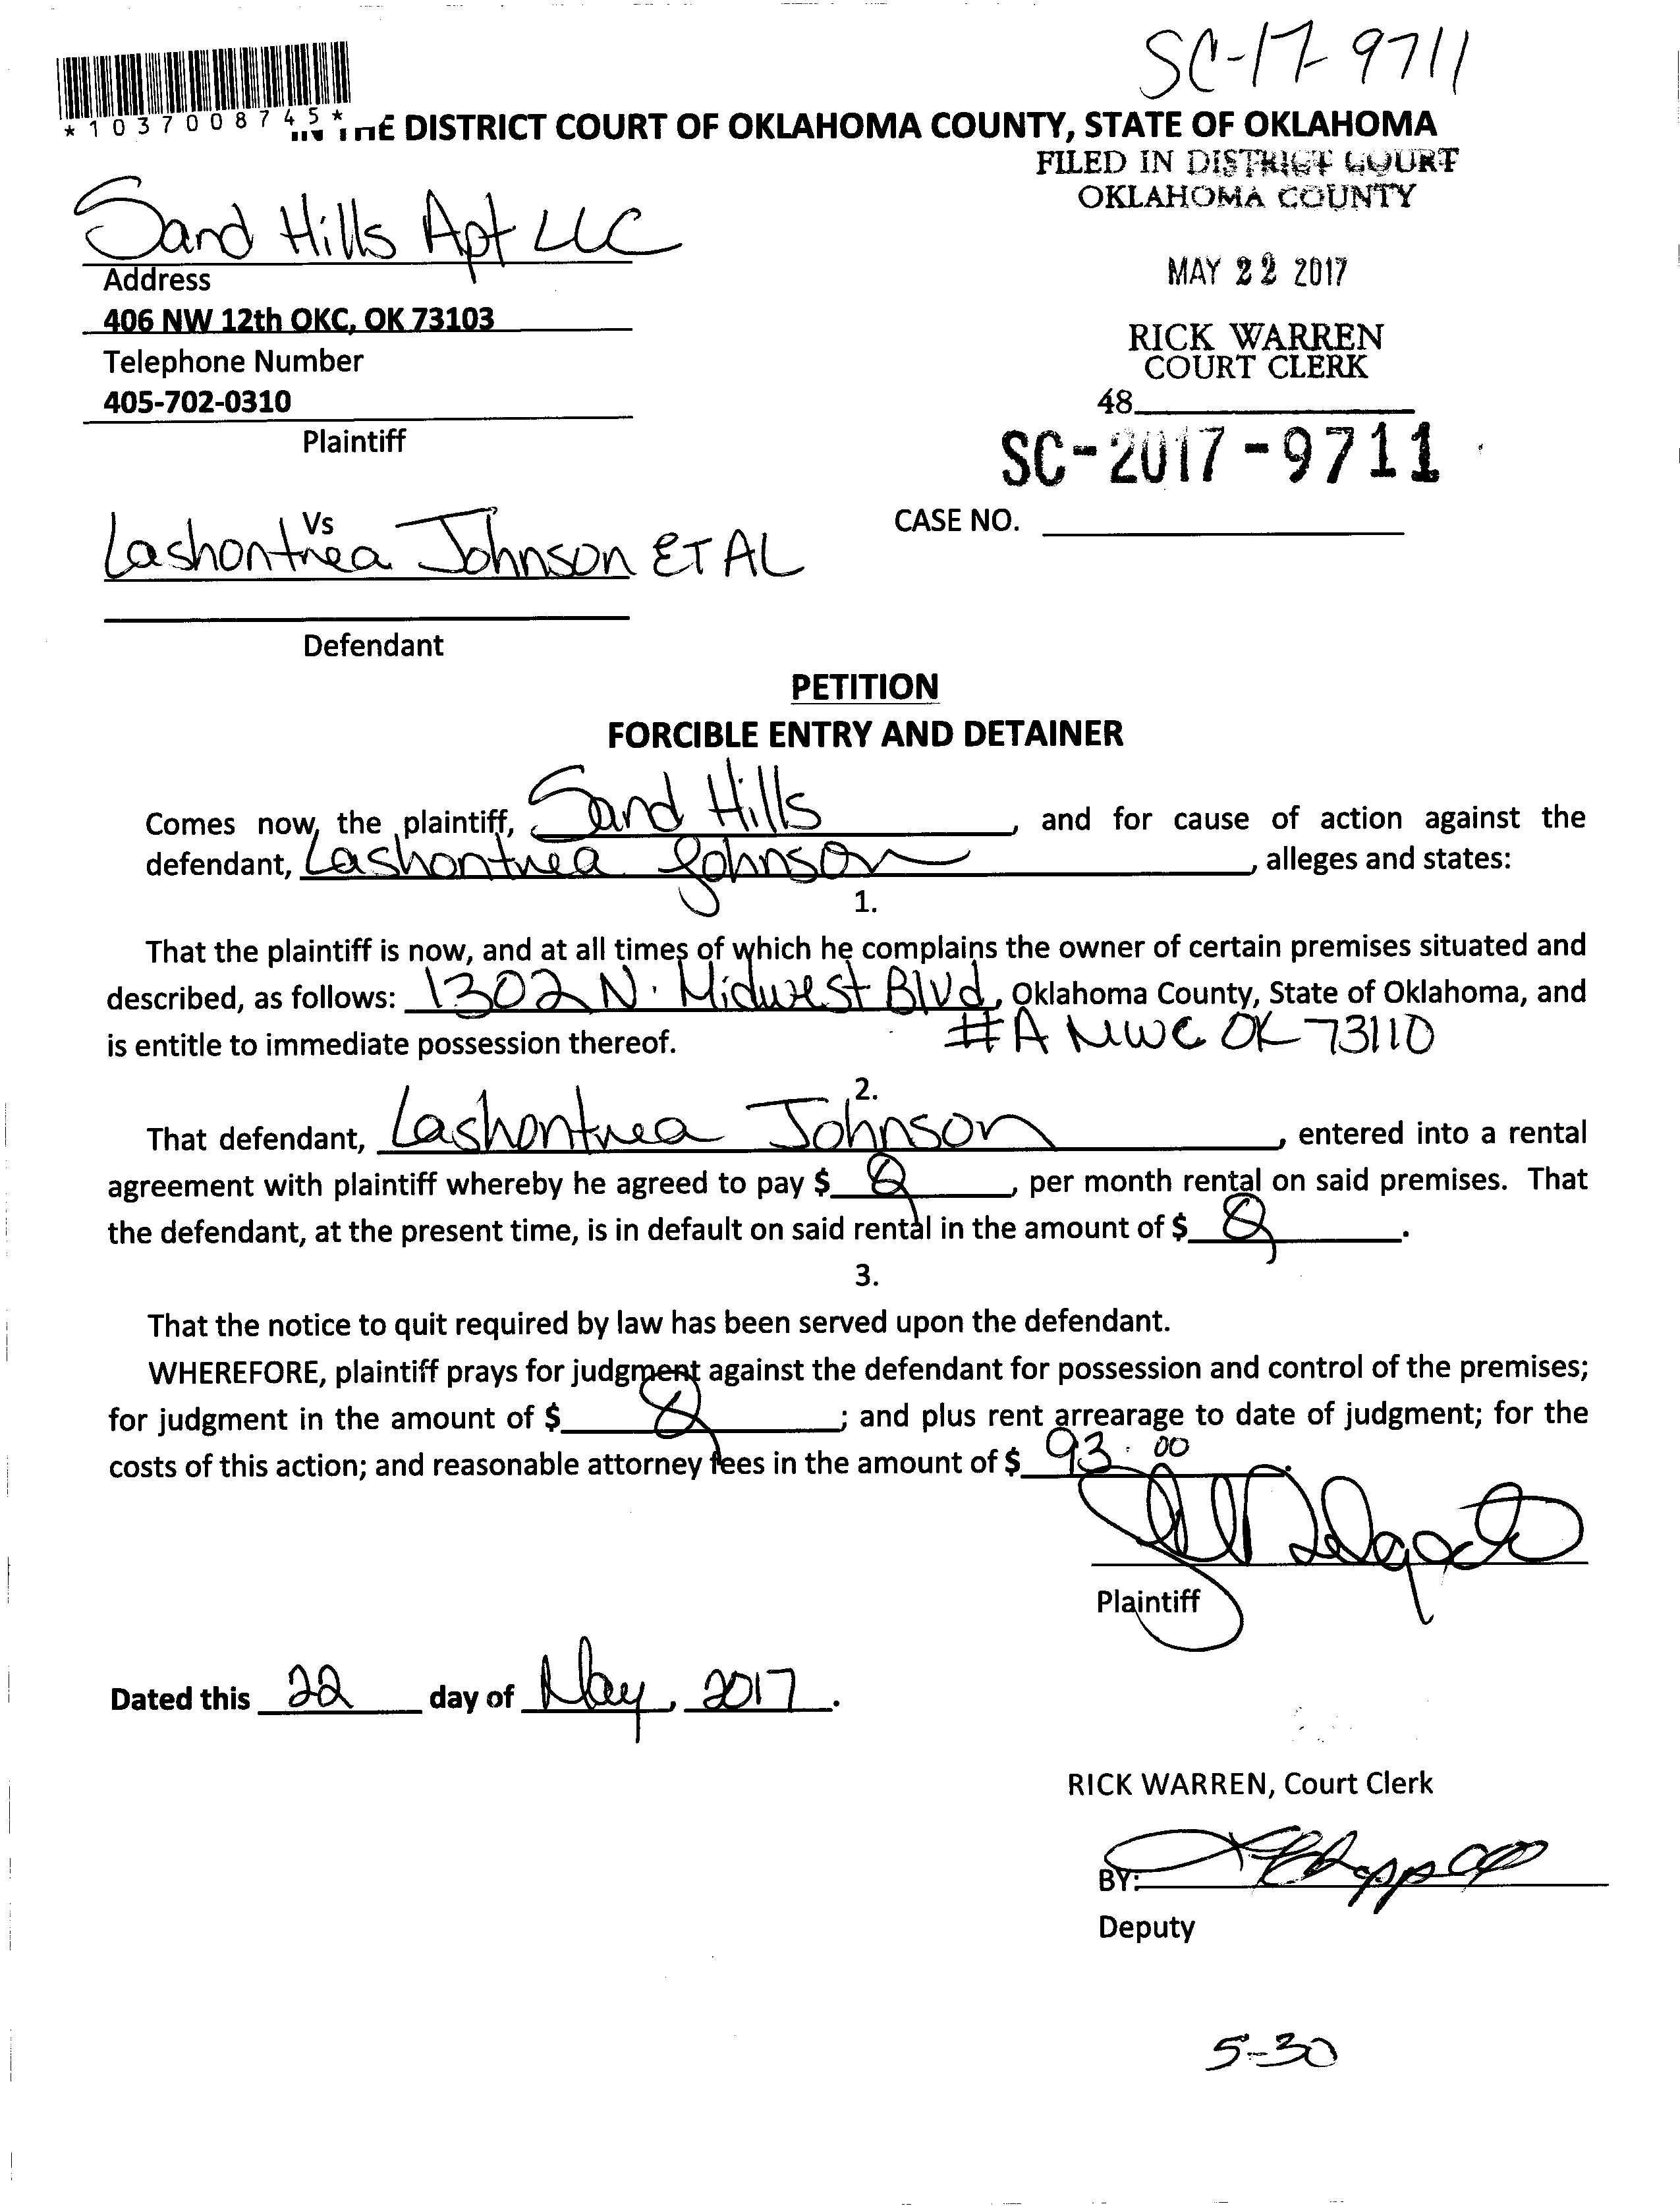 SC-17-9711
*1037008745*
IN THE DISTRICT COURT OF OKLAHOMA COUNTY, STATE OF OKLAHOMA
FILED IN DISTRICT COURT
OKLAHOMA COUNTY
Sand Hills Apt LLC
Address
MAY 22 2017
406 NW 12th OKC, OK 73103
Telephone Number
RICK WARREN
COURT CLERK
405-702-0310
48
Plaintiff
SC-2017-9711
Vs
CASE NO.
Lashontrea Johnson ET AL
Defendant
PETITION
FORCIBLE ENTRY AND DETAINER
Comes now, the plaintiff, Sand Hills, and for cause of action against the
defendant, Lashontrea Johnson, alleges and states:
1.
That the plaintiff is now, and at all times of which he complains the owner of certain premises situated and
described, as follows: 1302 N. Midwest Blvd, Oklahoma County, State of Oklahoma, and
is entitle to immediate possession thereof. #A MWC OK 73110
2.
That defendant, Lashontrea Johnson, entered into a rental
agreement with plaintiff whereby he agreed to pay $, per month rental on said premises. That
the defendant, at the present time, is in default on said rental in the amount of $.
3.
That the notice to quit required by law has been served upon the defendant.
WHEREFORE, plaintiff prays for judgment against the defendant for possession and control of the premises;
for judgment in the amount of $; and plus rent arrearage to date of judgment; for the
costs of this action; and reasonable attorney fees in the amount of $ 93.00.
Plaintiff
Dated this 22 day of May, 2017.
RICK WARREN, Court Clerk
BY:
Deputy
5-30